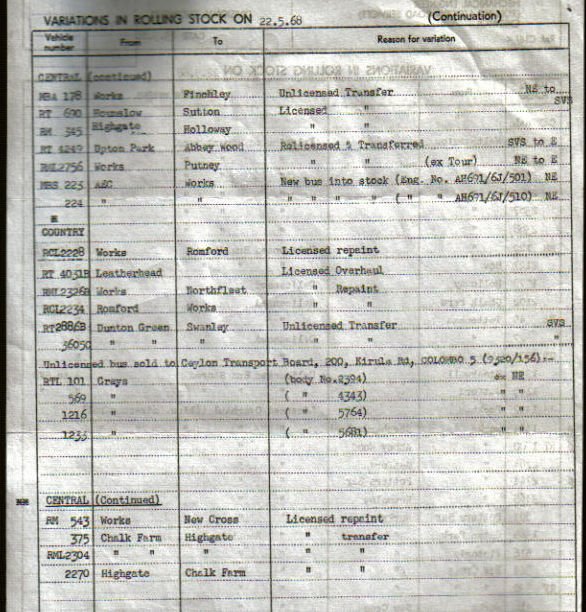 VARIATIONS IN ROLLING STOCK ON 22.5.68 (Continuation)
Vehicle number From To Reason for variation
CENTRAL (continued)
MBA 178 Works Finchley Unlicensed Transfer NE to SVS
RT 690 Hounslow Sutton Licensed "
RM 345 Highgate Holloway " "
RT 4249 Upton Park Abbey Wood Relicensed & Transferred SVS to E
RML2756 Works Putney " " (ex Tour) NE to E
MBS 223 AEC Works New bus into stock (Eng. No. AH691/6J/501) NE
224 " " " " " " ( " " AH691/6J/510) NE
COUNTRY
RCL2228 Works Romford Licensed repaint
RT 4031B Leatherhead Licensed Overhaul
RML2326B Works Northfleet " Repaint
RCL2234 Romford Works " "
RT2886B Dunton Green Swanley Unlicensed Transfer SVS
3605 " " " " " "
Unlicensed bus sold to Ceylon Transport Board, 200, Kirula Rd, COLOMBO 5 (9320/156):-
RTL 101 Grays (body No.2394) ex NE
569 " ( " 4343) " "
1216 " ( " 5764) " "
1233 " ( " 5681) " "
CENTRAL (Continued)
RM 543 Works New Cross Licensed repaint
375 Chalk Farm Highgate " transfer
RML2304 " " " " "
2270 Highgate Chalk Farm " "